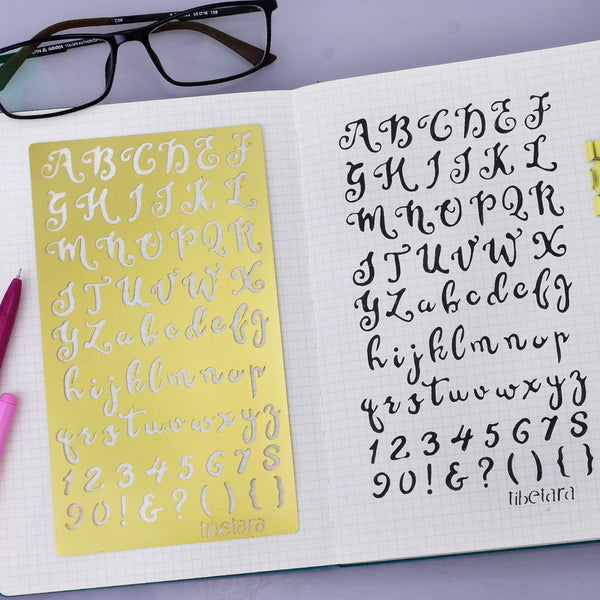 A B C D E F
G H I J K L
M N O P Q R
S T U V W X
Y Z a b c d e f g
h i j k l m n o p
q r s t u v w x y z
1 2 3 4 5 6 7 8
9 0 ! & ? ( ) { }
tibetara
A B C D E F
G H I J K L
M N O P Q R
S T U V W X
Y Z a b c d e f g
h i j k l m n o p
q r s t u v w x y z
1 2 3 4 5 6 7 8
9 0 ! & ? ( ) { }
tibetara